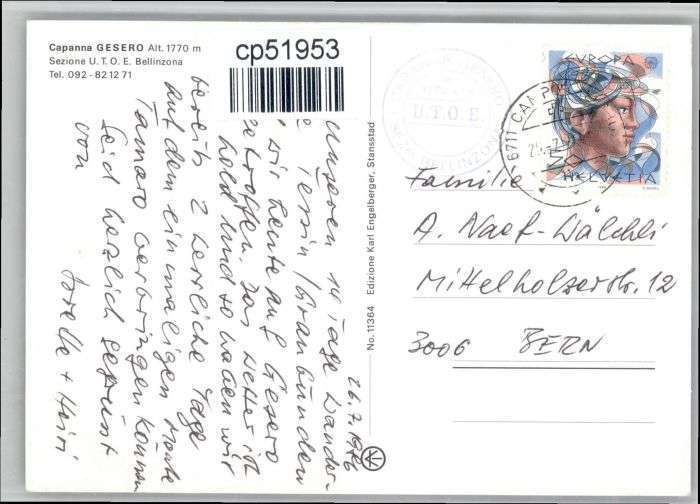 Capanna GESERO Alt. 1770 m
Sezione U. T. O. E. Bellinzona
Tel. 092 - 82 12 71
cp51953
U.T.O.E
BELLINZONA
6711 CAMPO
EUROPA
HELVETIA
26.7.1986
Unseren 14 Tage Wander-
Tessin/Graubünden
wir heute auf Gesero
getroffen. Das Wetter ist
hold und so haben wir
bereits 2 herrliche Tage
auf dem einmaligen Monte
Tamaro verbringen können
Seid herzlich gegrüsst
von
+ Heiri
No. 11364 Edizione Karl Engelberger, Stansstad
Familie
A. Naef-Wälchli
Mittelholzerstr. 12
3006 BERN